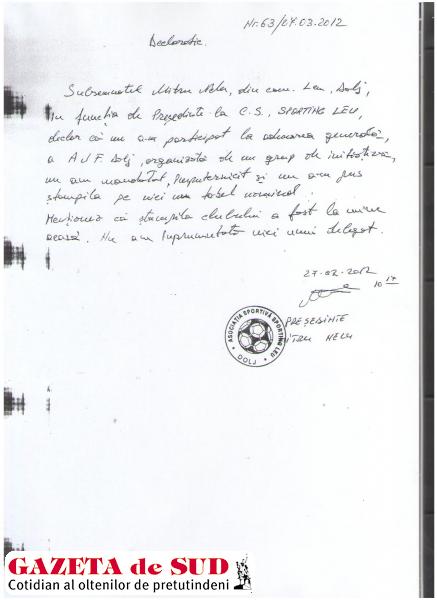 Nr. 63/04.03.2012
Declaratie.
Subsemnatul Mitru Nelu, din com. Leu, Dolj,
în funcția de Președinte la C.S. SPORTING LEU,
declar că nu am participat la adunarea generală,
a AJF Dolj, organizată de un grup de inițiativă,
nu am mandatat, împuternicit și nu am pus
ștampila pe nici un tabel nominal.
Menționez că ștampila clubului a fost la mine
acasă. Nu am împrumutat-o nici unui delegat.
27-02-2012
10 17
PREȘEDINTE
MITRU NELU
ASOCIAȚIA SPORTIVĂ SPORTING LEU
* DOLJ *
GAZETA de SUD
Cotidian al oltenilor de pretutindeni